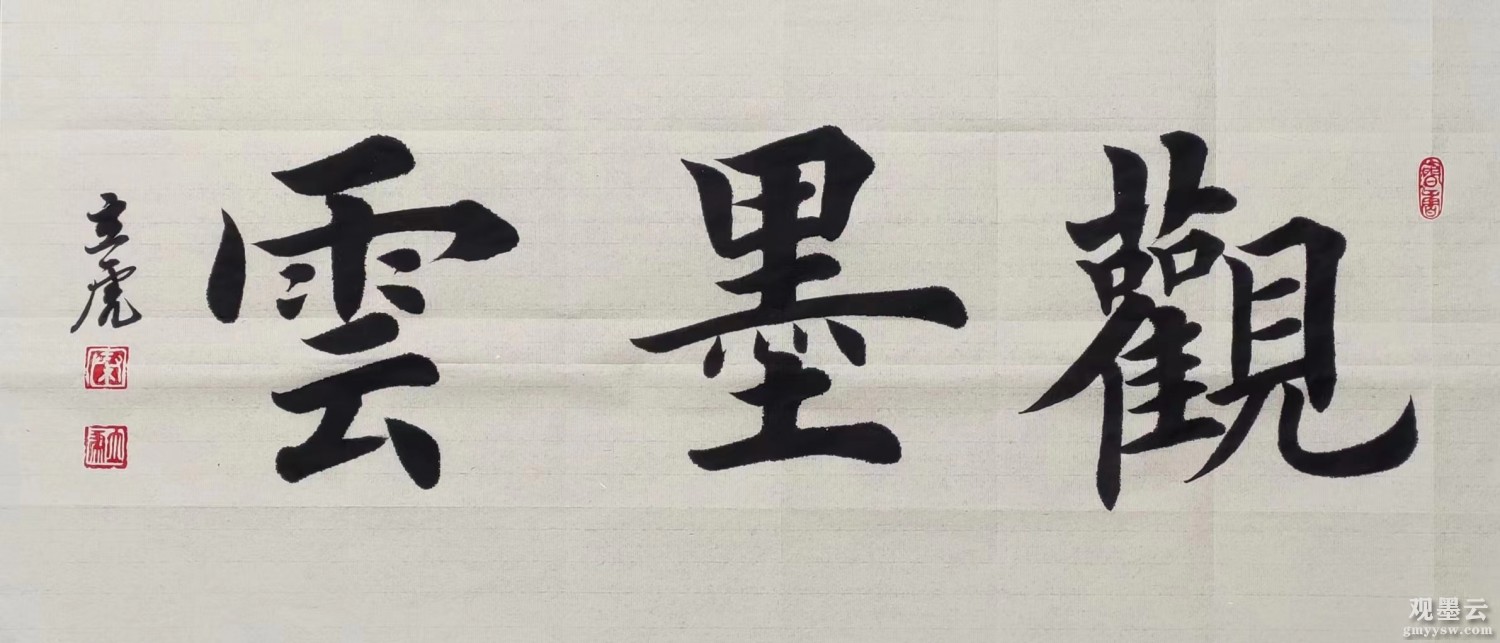 觀墨雲
立虎
观墨云
gmyysw.com